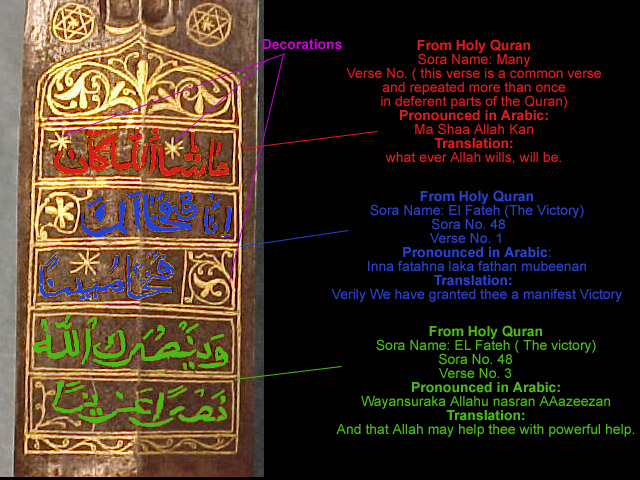 ماشاالله كان
انا فتحنا لك
فتحا مبينا
وينصرك الله
نصرا عزيزا
Decorations
From Holy Quran
Sora Name: Many
Verse No. ( this verse is a common verse
and repeated more than once
in deferent parts of the Quran)
Pronounced in Arabic:
Ma Shaa Allah Kan
Translation:
what ever Allah wills, will be.
From Holy Quran
Sora Name: El Fateh (The Victory)
Sora No. 48
Verse No. 1
Pronounced in Arabic:
Inna fatahna laka fathan mubeenan
Translation:
Verily We have granted thee a manifest Victory
From Holy Quran
Sora Name: EL Fateh ( The victory)
Sora No. 48
Verse No. 3
Pronounced in Arabic:
Wayansuraka Allahu nasran AAazeezan
Translation:
And that Allah may help thee with powerful help.